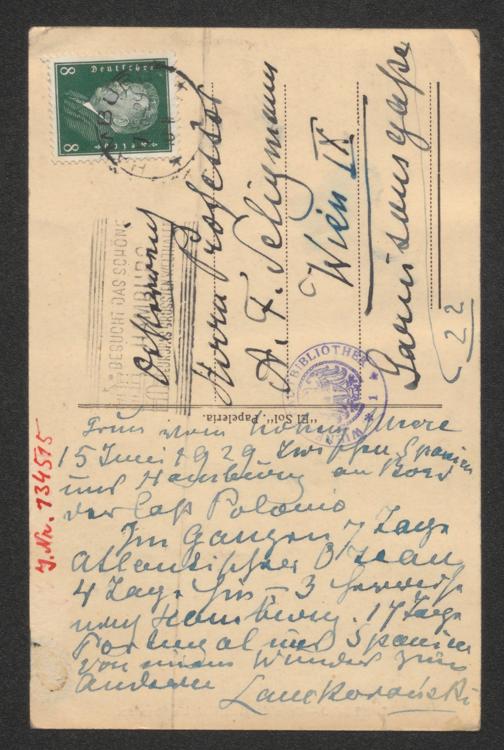 Deutsches
8 8
Reich
HAMBURG
BESUCHT DAS SCHÖNE
HAMBURG
Österreich
Herrn Professor
A. F. Seligmann
Wien IX
Garnisongasse
22
BIBLIOTHEK
WIEN
1
"El Sol". Papeleria.
J. Nr. 134515
vom hohen Meere
15 Juni 1929 zwischen Spanien
und Hamburg an Bord
der Cap Polonio
Im Ganzen 7 Tage
Atlantischer Ozean
4 Tage hin – 3
nach Hamburg. 17 Tage
Portugal und Spanien
von einem Wunder zum
anderen
Lanckoroński